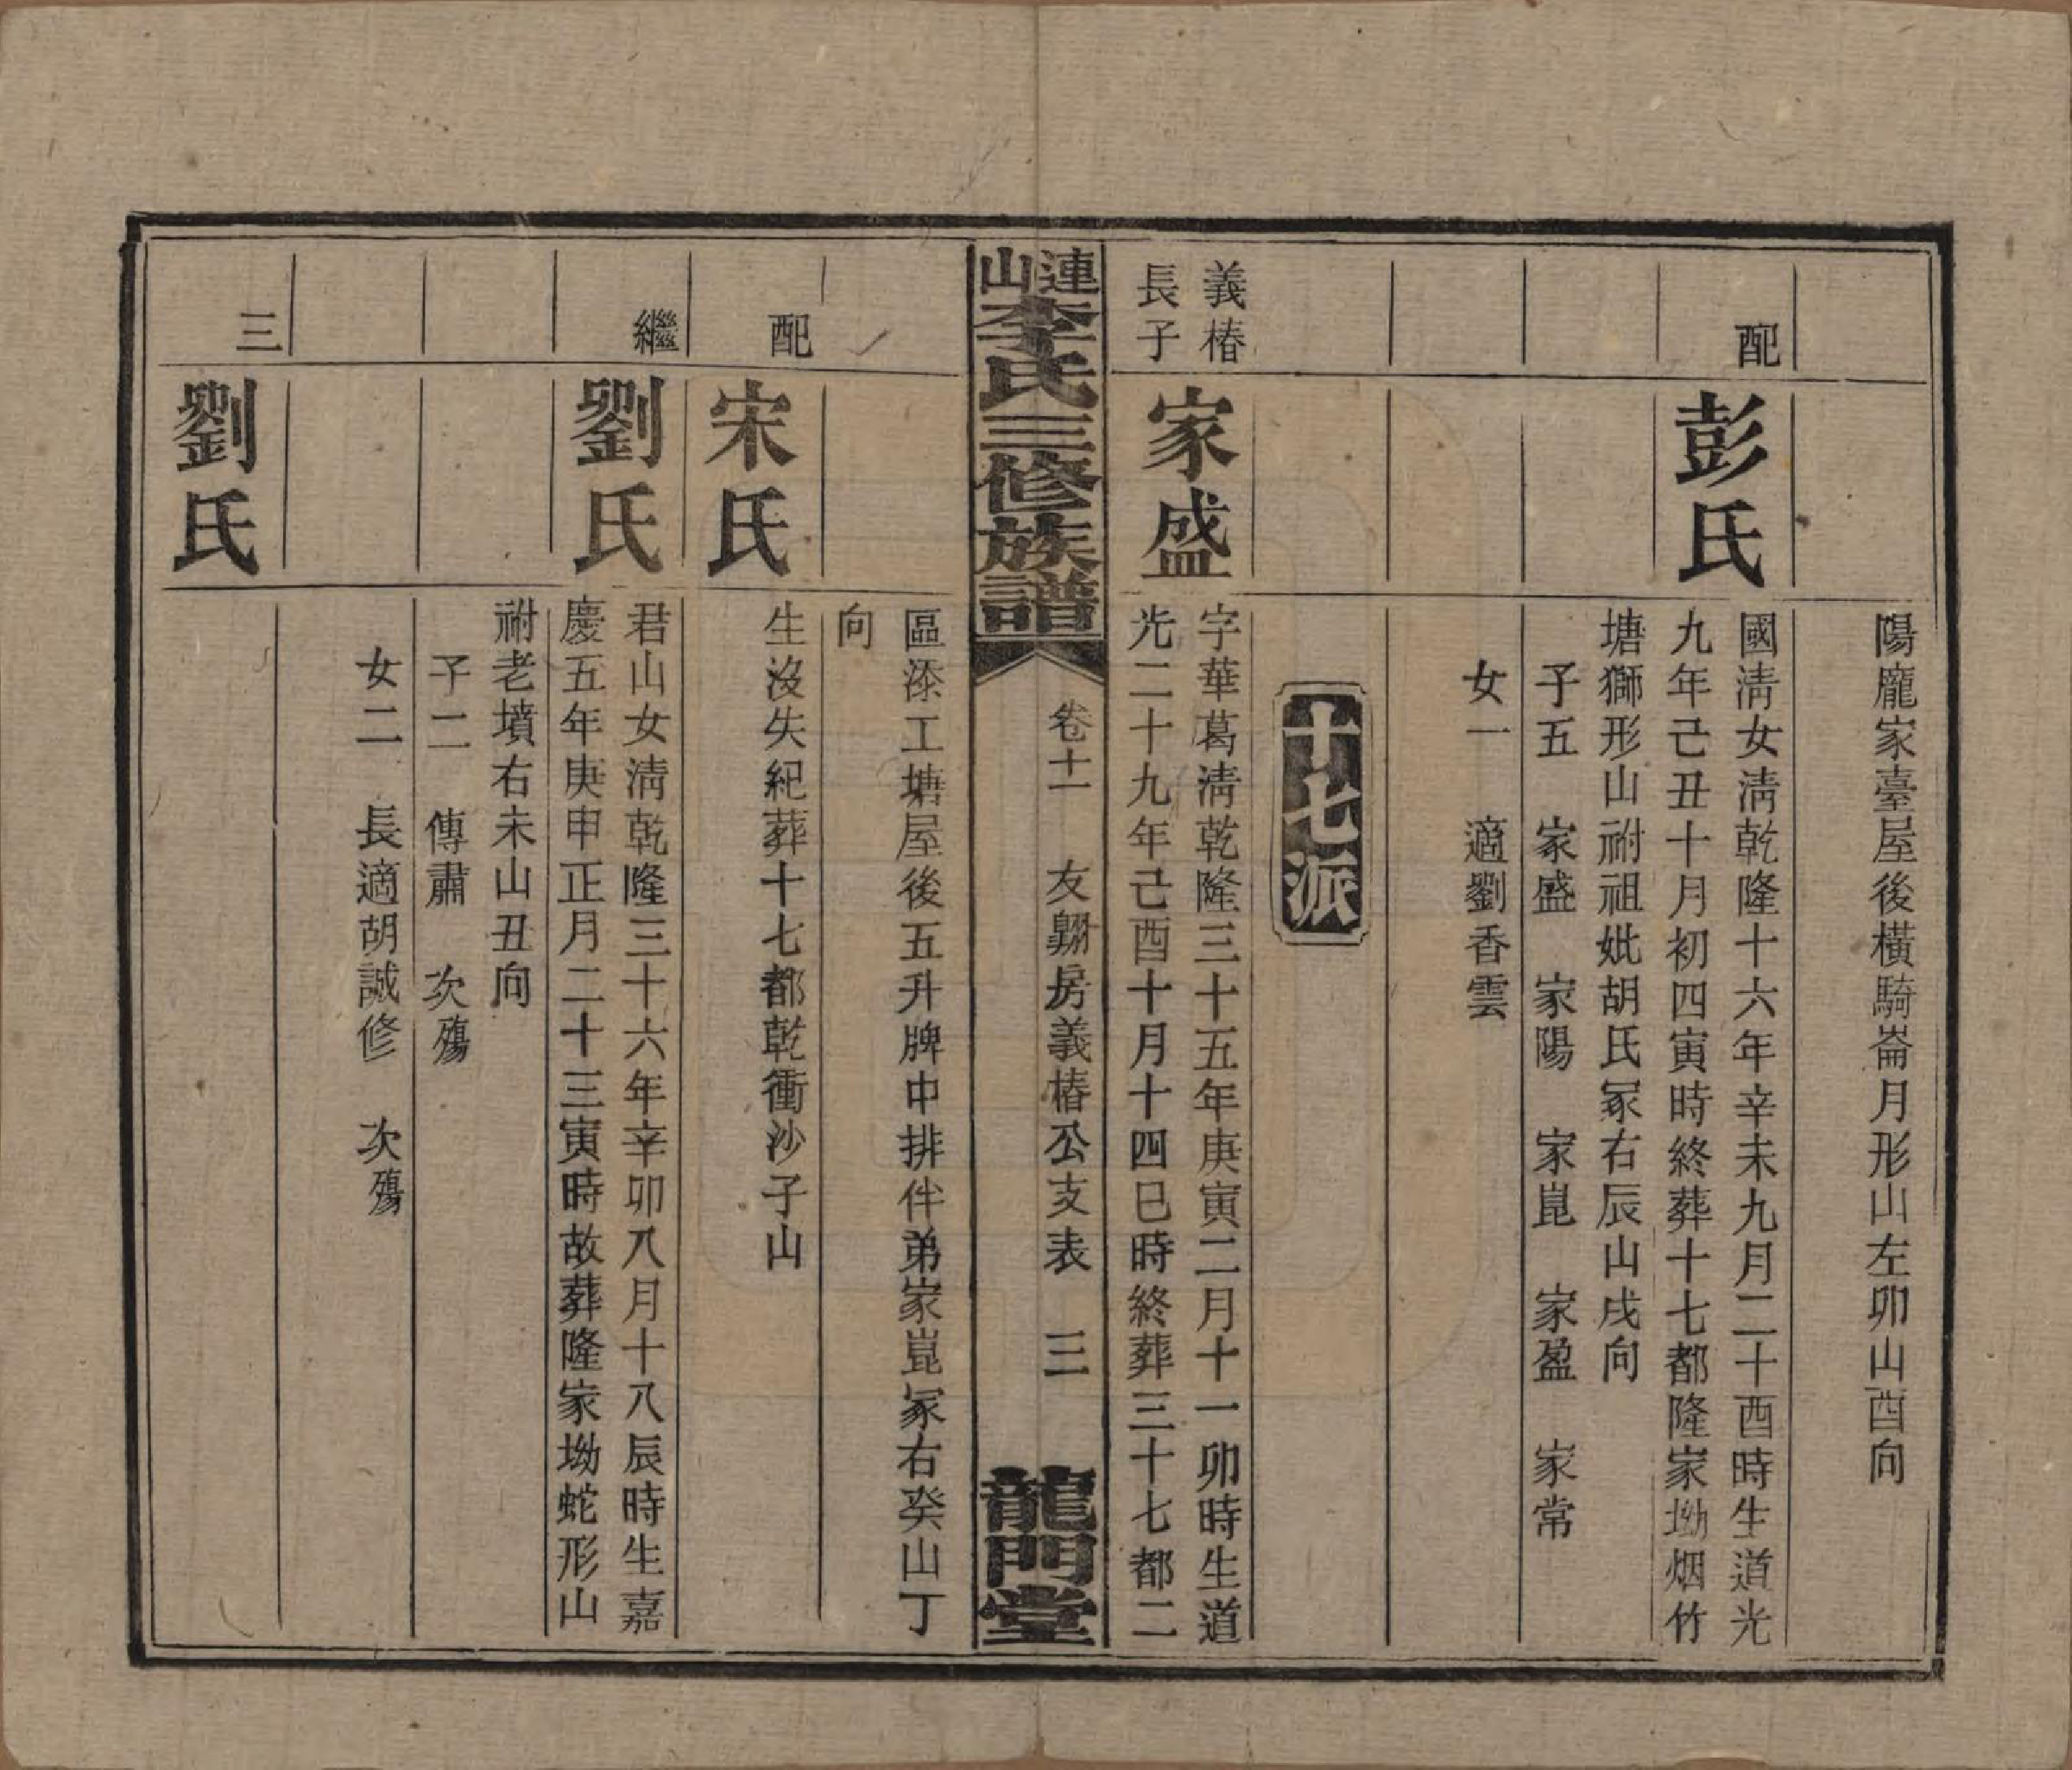 陽龐家臺屋後橫騎崙月形山左卯山酉向
配
彭氏
國淸女淸乾隆十六年辛未九月二十酉時生道光
九年己丑十月初四寅時終葬十七都隆家坳烟竹
塘獅形山祔祖妣胡氏冢右辰山戌向
子五 家盛 家陽 家崑 家盈 家常
女一 適劉香雲
十七派
義椿
長子
家盛
字華葛淸乾隆三十五年庚寅二月十一卯時生道
光二十九年己酉十月十四巳時終葬三十七都二
連山李氏三修族譜
卷十一 友翱房義椿公支表 三
龍門堂
區漆工塘屋後五升牌中排伴弟家崑冢右癸山丁
向
配
宋氏
生沒失紀葬十七都乾衝沙子山
繼
劉氏
君山女淸乾隆三十六年辛卯八月十八辰時生嘉
慶五年庚申正月二十三寅時故葬隆家坳蛇形山
祔老墳右未山丑向
子二 傳肅 次殤
女二 長適胡誠修 次殤
三
劉氏